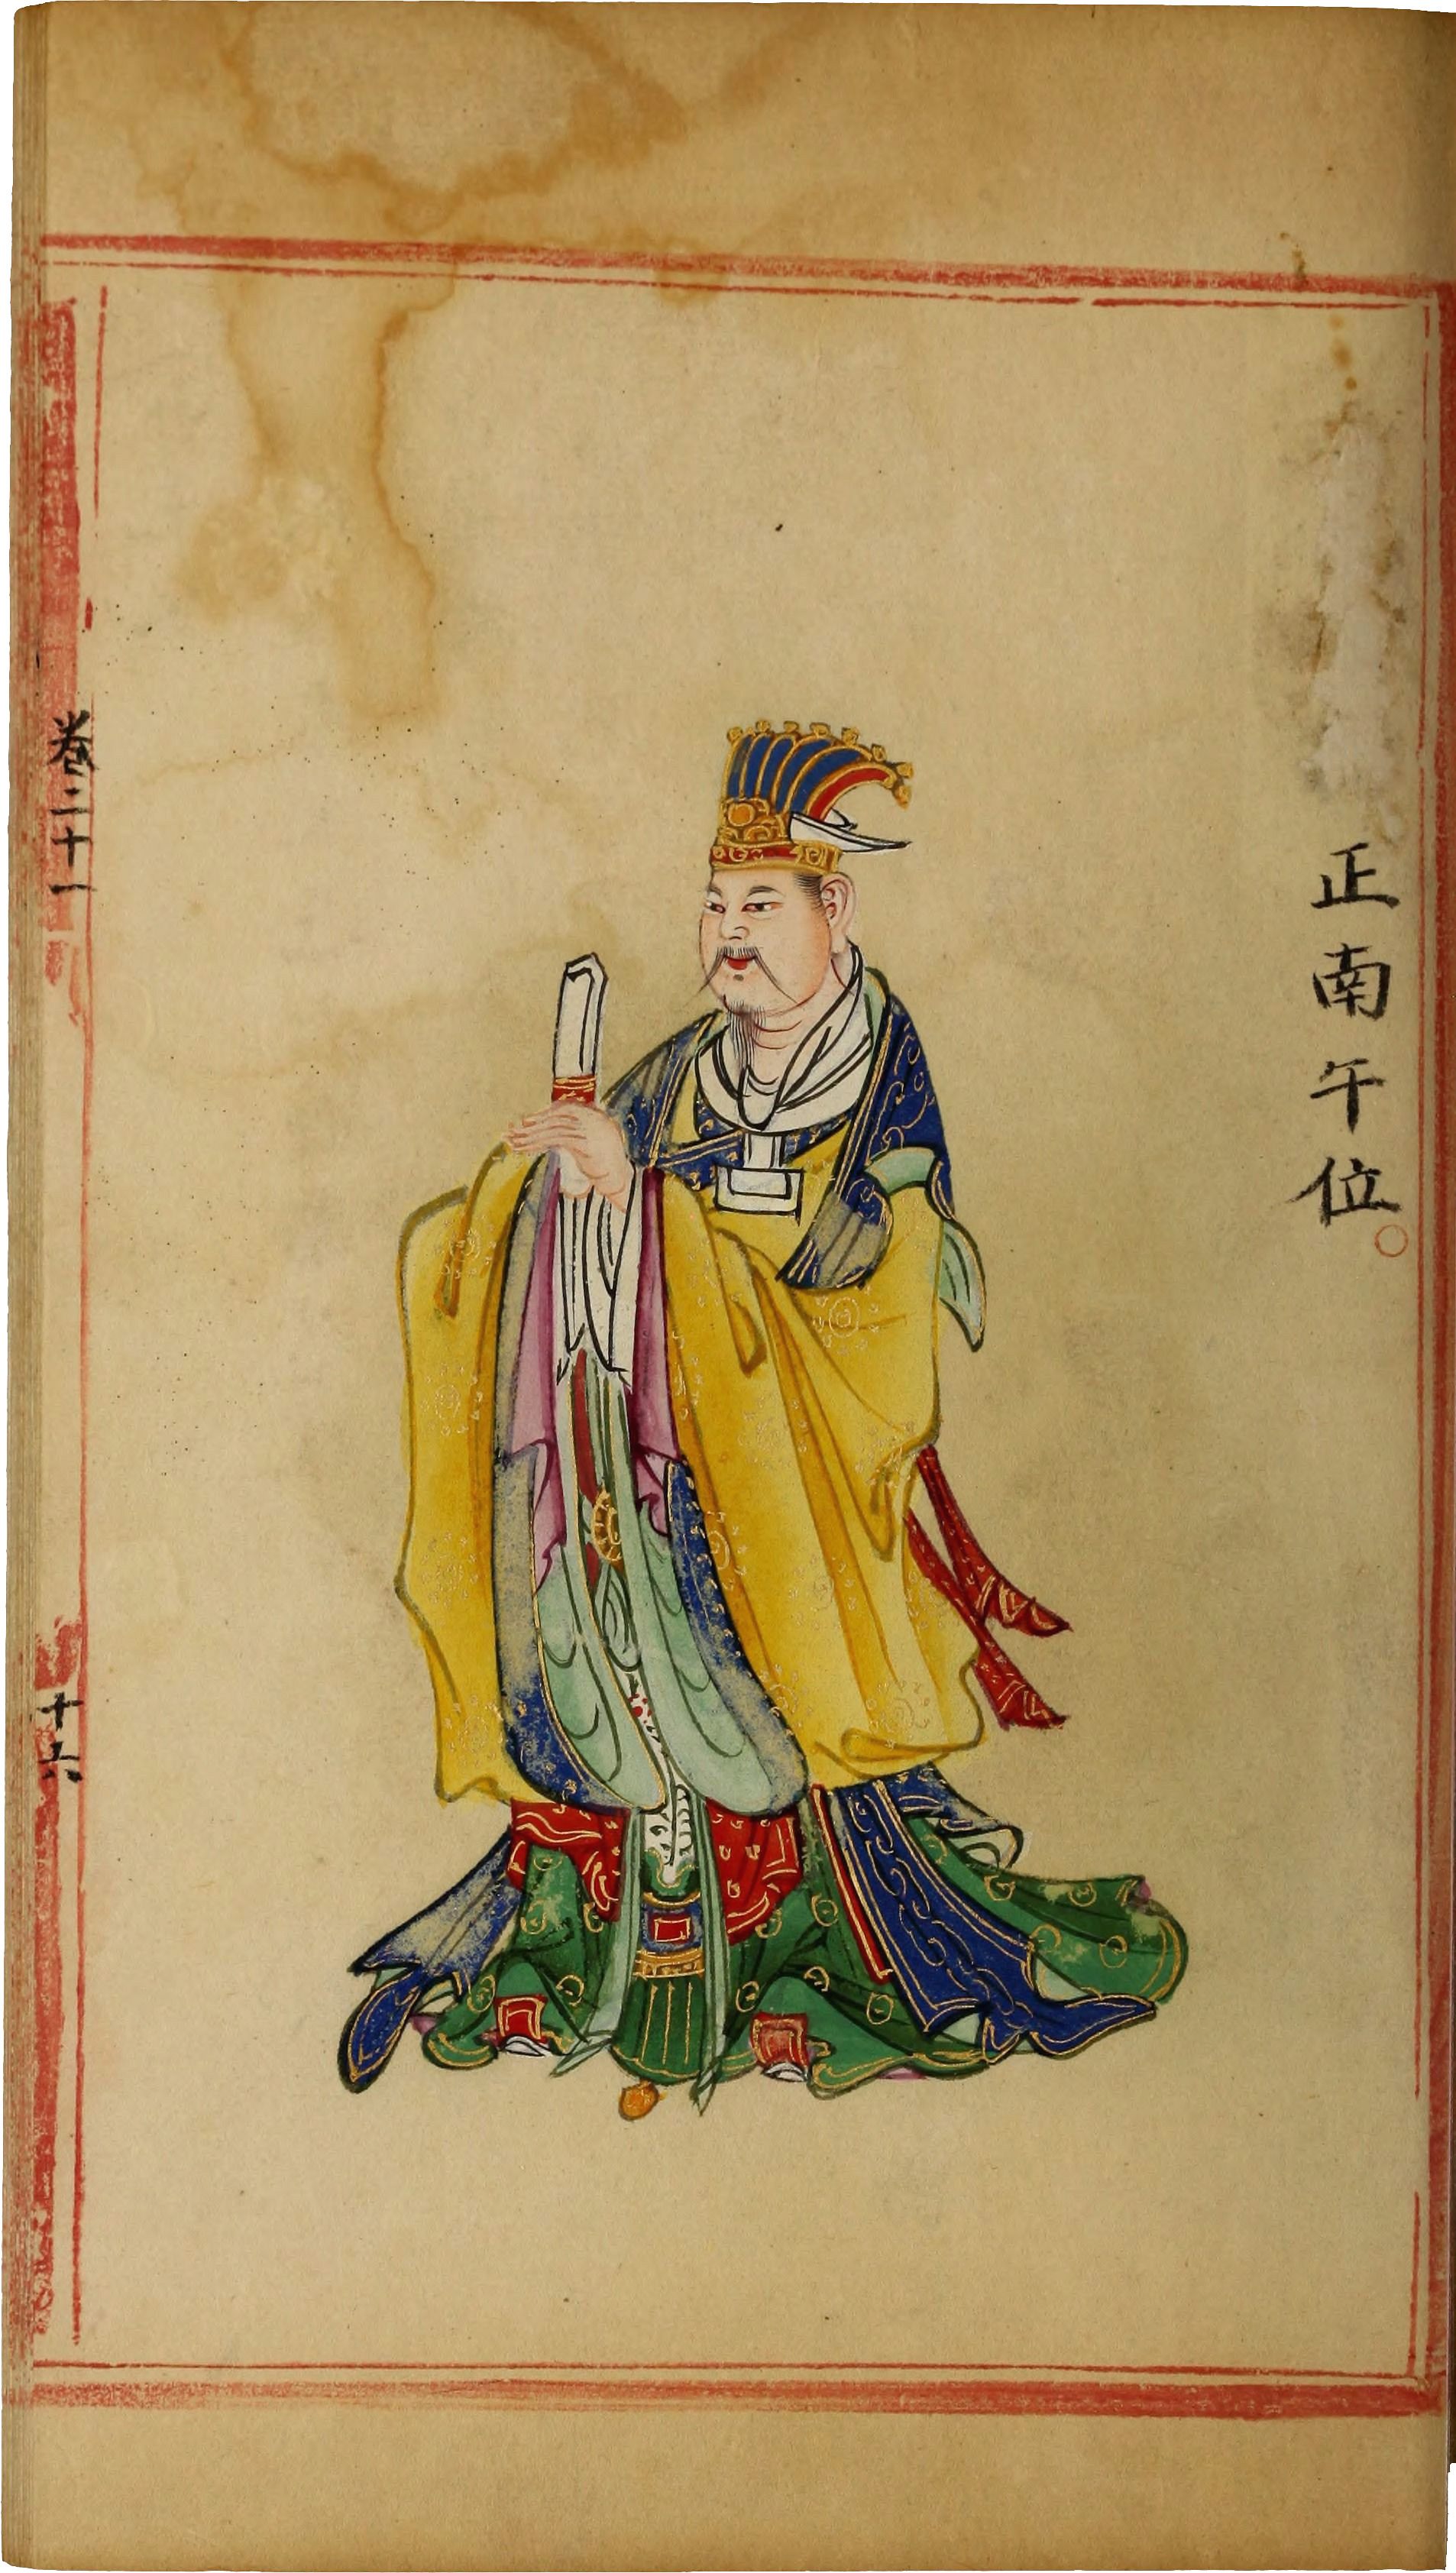 正南午位
卷二十一
十六